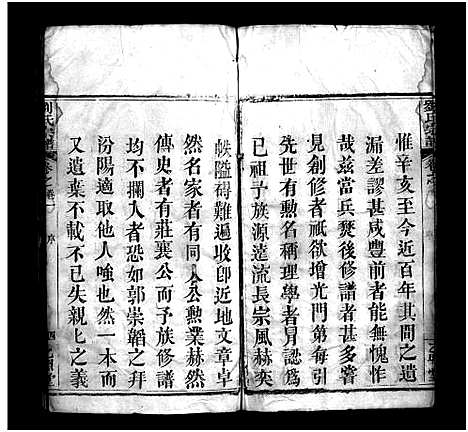 惟辛亥至今近百年其間之遺
漏差謬甚咸豐前者能無愧怍
哉茲當兵燹後修譜者甚多每
見創修者祇欲增光門第每引
先世有勲名稱理學者冒認爲
已祖予族源遠流長宗風赫奕
帙隘碍難遍收卽近地文章卓
然名家者有同人公勲業赫然
傳史者有莊襄公而予族修譜
均不攔入者恐如郭崇韜之拜
汾陽適取他人唾也然一本而
又遺葉不載不已失親上之義
劉氏宗譜
卷之
序
四